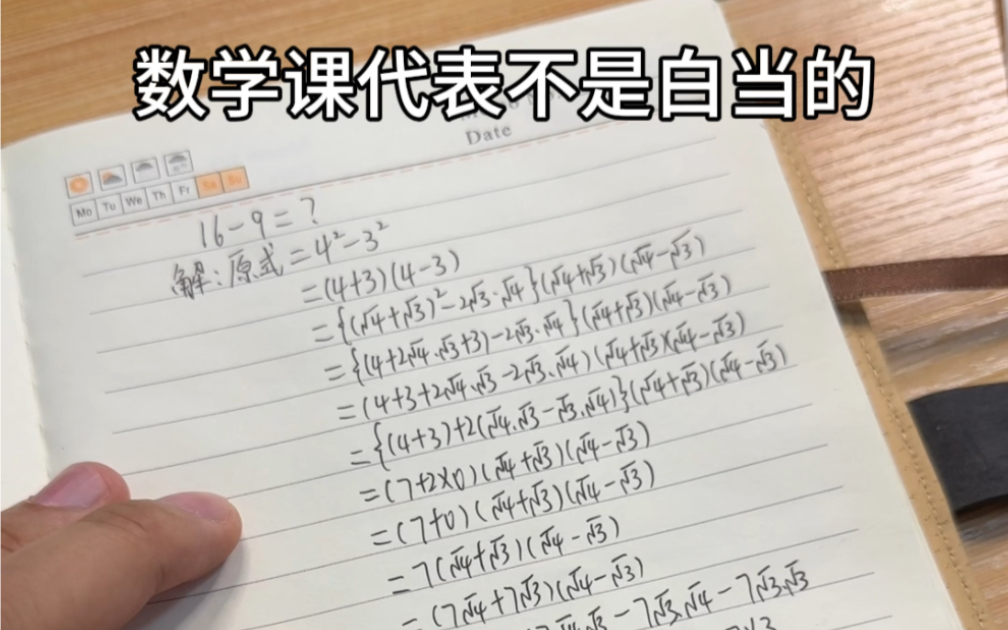 数学课代表不是白当的
Date
Mo Tu We Th Fr Sa Su
16-9=?
解:原式=4²-3²
=(4+3)(4-3)
={(√4+√3)²-2√3·√4}(√4+√3)(√4-√3)
={(4+2√4·√3+3)-2√3·√4}(√4+√3)(√4-√3)
=(4+3+2√4·√3-2√3·√4)(√4+√3)(√4-√3)
={(4+3)+2(√4·√3-√3·√4)}(√4+√3)(√4-√3)
=(7+2×0)(√4+√3)(√4-√3)
=(7+0)(√4+√3)(√4-√3)
=7(√4+√3)(√4-√3)
=(7√4+7√3)(√4-√3)
√4·√3-7√3·√4-7√3·√3